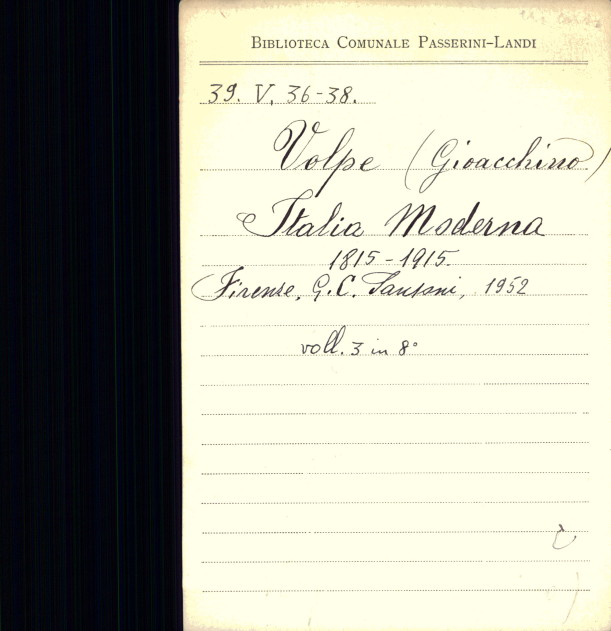 BIBLIOTECA COMUNALE PASSERINI-LANDI
39. V, 36-38.
Volpe (Gioacchino)
Italia Moderna
1815-1915.
Firenze, G. C. Sansoni, 1952
voll. 3 in 8°